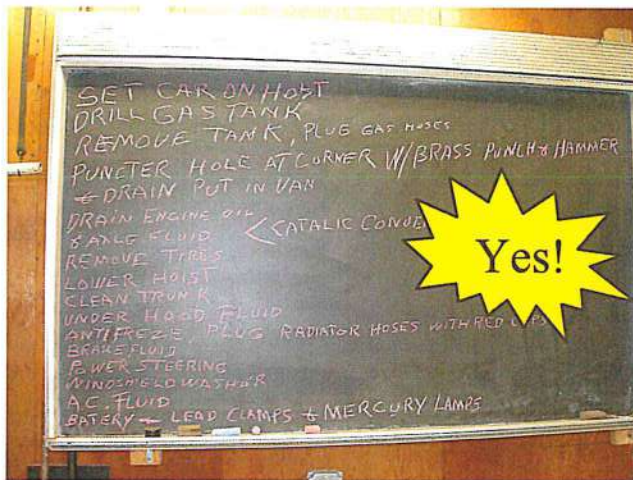 SET CAR ON HOST
DRILL GAS TANK
REMOVE TANK, PLUG GAS HOSES
PUNCTER HOLE AT CORNER W/BRASS PUNCH & HAMMER
& DRAIN PUT IN VAN
DRAIN ENGINE OIL
& AXLE FLUID < CATALIC
REMOVE TIRES
LOWER HOIST
CLEAN TRUNK
UNDER HOOD FLUID
ANTIFREZE, PLUG RADIATOR HOSES WITH RED CAPS
BRAKE FLUID
POWER STEERING
WINDSHIELD WASHOR
A.C. FLUID
BATERY - LEAD CLAMPS & MERCURY LAMPS
Yes!